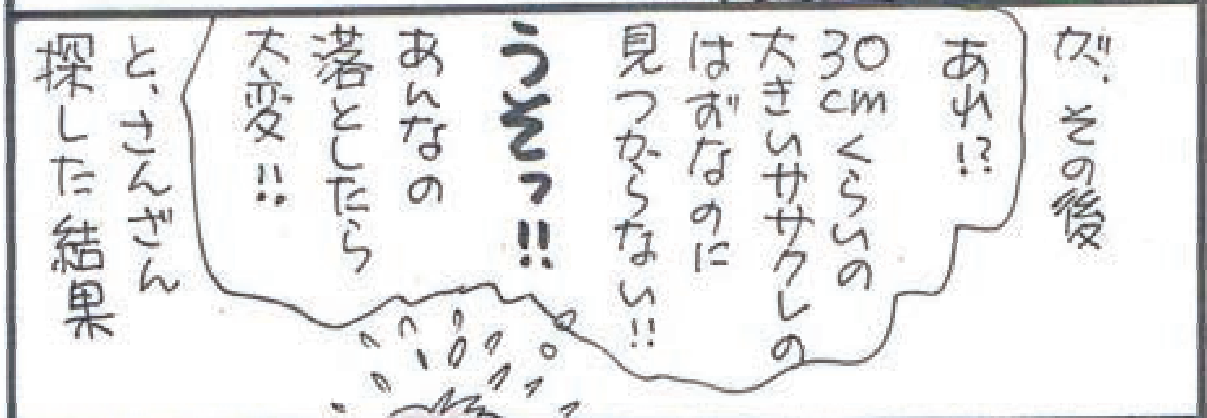 が、その後
あれ!?
30
cmくらいの
大きいササクレの
はずなのに
見つからない!!
うそっ!!
あんなの
落としたら
大変!!
と、さんざん
探した結果